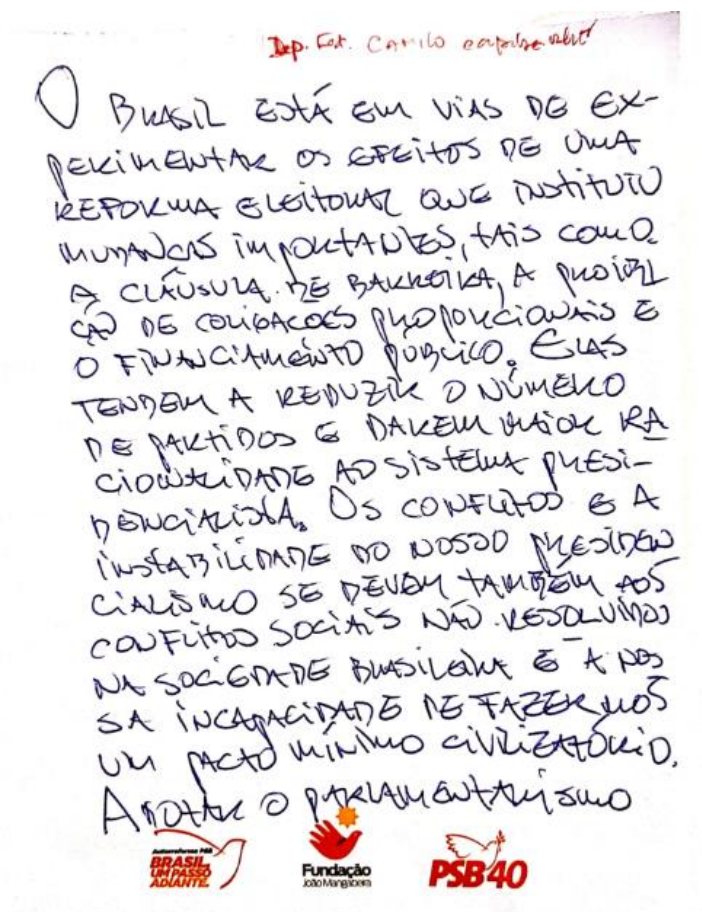 Dep. Fed. Camilo Capiberibe
O BRASIL ESTÁ EM VIAS DE EX-
PERIMENTAR OS EFEITOS DE UMA
REFORMA ELEITORAL QUE INSTITUIU
MUDANÇAS IMPORTANTES, TAIS COMO.
A CLÁUSULA DE BARREIRA, A PROIBI
ÇÃO DE COLIGAÇÕES PROPORCIONAIS E
O FINANCIAMENTO PÚBLICO. ELAS
TENDEM A REDUZIR O NÚMERO
DE PARTIDOS E DAREM MAIOR RA
CIONALIDADE AO SISTEMA PRESI-
DENCIALISTA. OS CONFLITOS E A
INSTABILIDADE DO NOSSO PRESIDEN
CIALISMO SE DEVEM TAMBÉM AOS
CONFLITOS SOCIAIS NÃO RESOLVIDOS
NA SOCIEDADE BRASILEIRA E A NOS
SA INCAPACIDADE DE FAZERMOS
UM PACTO MÍNIMO CIVILIZATÓRIO.
ADOTAR O PARLAMENTARISMO
Autorreforma PSB
BRASIL,
UM PASSO
ADIANTE.
Fundação
João Mangabeira
PSB 40